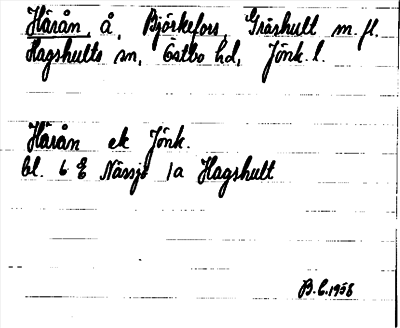 Härån, å, Björkefors, Gråshult m. fl.
Hagshults sn, Östbo hd, Jönk. l.
Härån ek Jönk.
bl. 6 E Nässjö 1a Hagshult
B.C. 1958